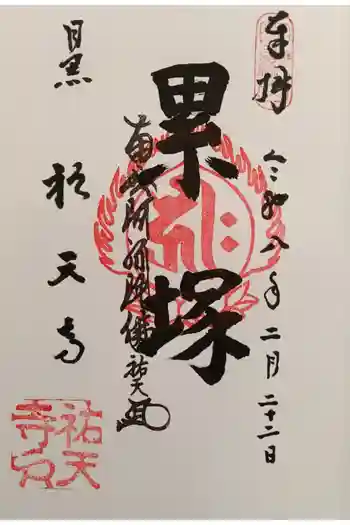 奉拝
令和八年二月二十二日
累塚
南無阿弥陀佛祐天
目黒
祐天寺
祐天
寺印